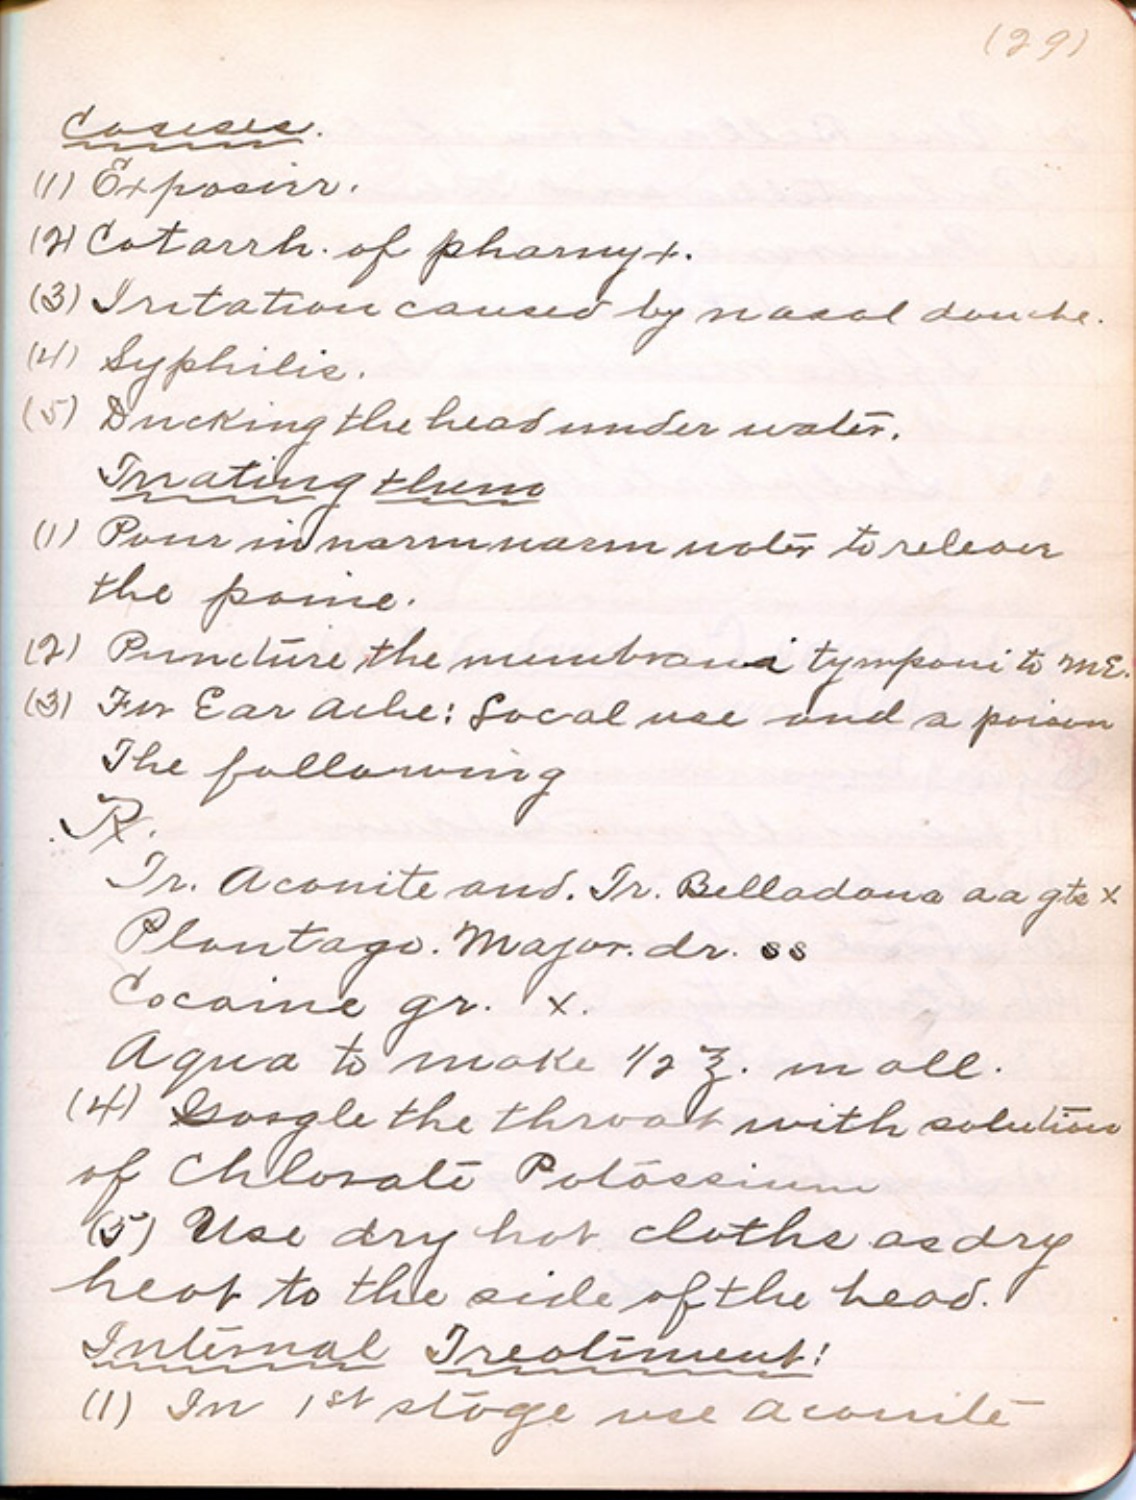 (29)
Causes.
(1) Exposirr.
(2) Catarrh. of pharnyx.
(3) Iritation caused by nasal douche.
(4) Syphilis.
(5) Ducking the head under water.
Treating them
(1) Pour in warm warm water to releave
the paine.
(2) Puncture the membrana tympani to ME.
(3) For Ear Ache: Local use and a poison
The following
Rx.
Tr. Aconite and. Tr. Belladona aa gts x
Plantago. Major. dr. ss
Cocaine gr. x.
Aqua to make 1/2 ℥. in all.
(4) Gargle the throat with solution
of Chlorate Potassium
(5) Use dry hot cloths as dry
heat to the side of the head.
Internal Treatment:
(1) In 1st stage use aconite